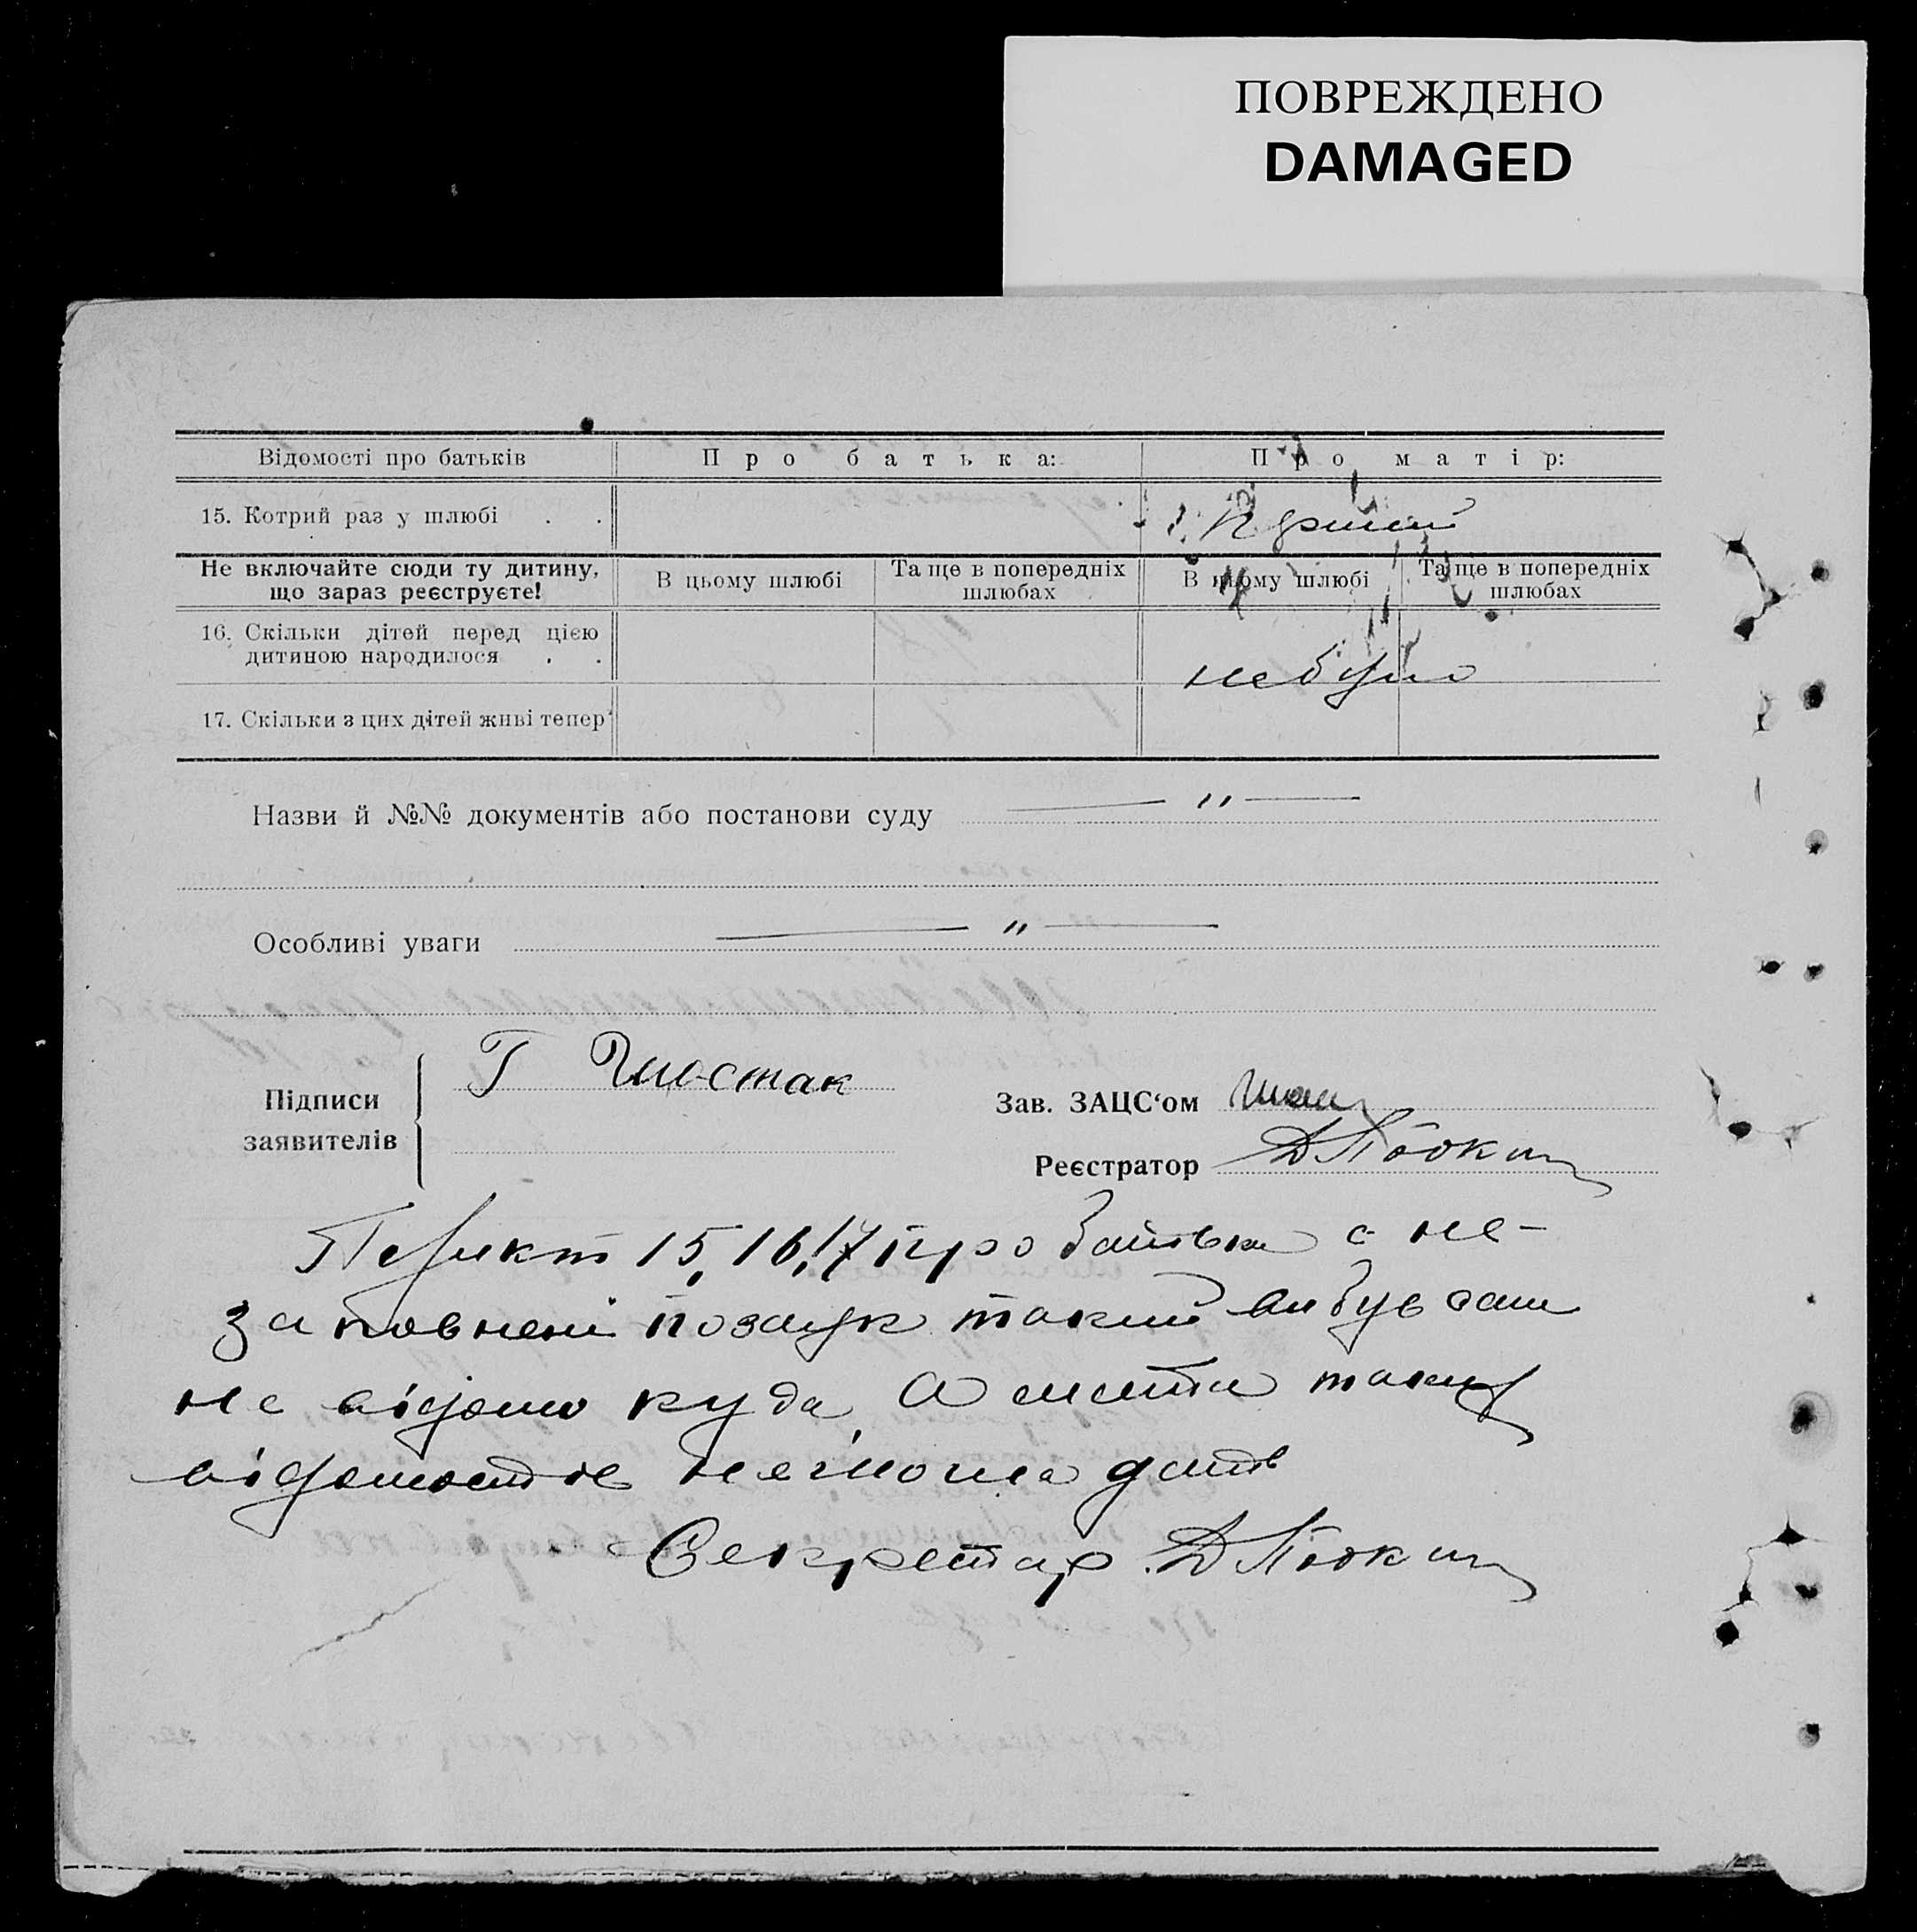 ПОВРЕЖДЕНО
DAMAGED
Відомості про батьків
Про батька:
Про матір:
15. Котрий раз у шлюбі . .
Не включайте сюди ту дитину, що зараз реєструєте!
В цьому шлюбі
Та ще в попередніх шлюбах
В цьому шлюбі
Та ще в попередніх шлюбах
16. Скільки дітей перед цією
дитиною народилося . .
небуло
17. Скільки з цих дітей живі тепер
Назви й №№ документів або постанови суду — " —
Особливі уваги — " —
Підписи
заявителів
Г Шостак
Зав. ЗАЦС‘ом
Реєстратор
15, 16, 17 про батька є не-
заповнені позаяк такий вибув
не відомо куда, а мати таких
відомостів неможе дать
Секретар